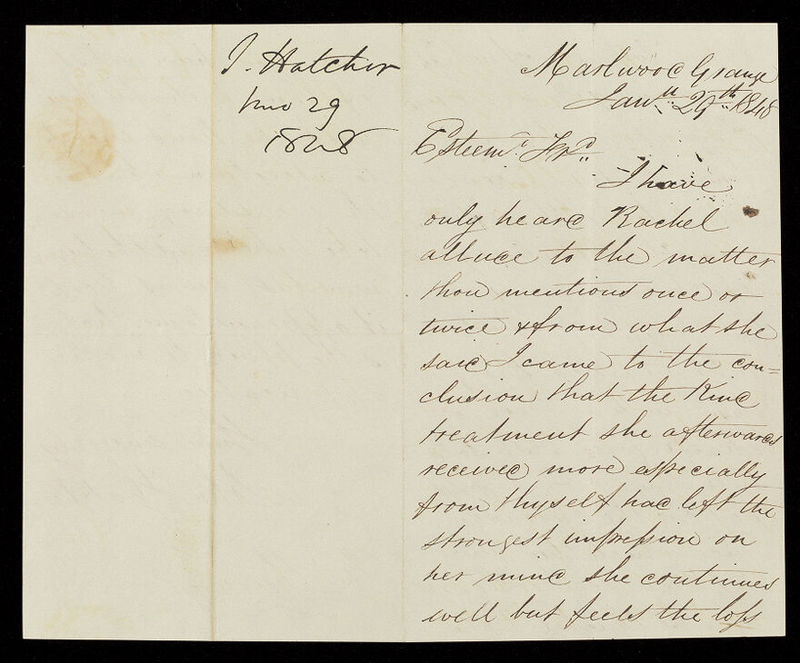 J. Hatcher
1mo 29
1848
Marlwood Grange
Jany. 29th. 1848
Esteemd. Frd.
I have
only heard Rachel
alluce to the matter
thou mentions once or
twice & from what she
said I came to the con=
clusion that the Kind
treatment she afterwards
received more especially
from thyself had left the
strongest impression on
her mind she continues
well but feels the loss